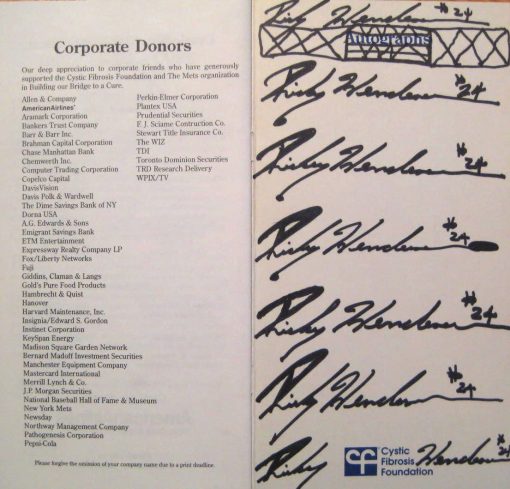 Corporate Donors
Our deep appreciation to corporate friends who have generously
supported the Cystic Fibrosis Foundation and The Mets organization
in Building our Bridge to a Cure.
Allen & Company
AmericanAirlines®
Aramark Corporation
Bankers Trust Company
Barr & Barr Inc.
Brahman Capital Corporation
Chase Manhattan Bank
Chemwerth Inc.
Computer Trading Corporation
Copelco Capital
DavisVision
Davis Polk & Wardwell
The Dime Savings Bank of NY
Dorna USA
A.G. Edwards & Sons
Emigrant Savings Bank
ETM Entertainment
Expressway Realty Company LP
Fox/Liberty Networks
Fuji
Giddins, Claman & Langs
Gold's Pure Food Products
Hambrecht & Quist
Hanover
Harvard Maintenance, Inc.
Insignia/Edward S. Gordon
Instinet Corporation
KeySpan Energy
Madison Square Garden Network
Bernard Madoff Investment Securities
Manchester Equipment Company
Mastercard International
Merrill Lynch & Co.
J.P. Morgan Securities
National Baseball Hall of Fame & Museum
New York Mets
Newsday
Northway Management Company
Pathogenesis Corporation
Pepsi-Cola
Perkin-Elmer Corporation
Plantex USA
Prudential Securities
F. J. Sciame Contruction Co.
Stewart Title Insurance Co.
The WIZ
TDI
Toronto Dominion Securities
TRD Research Delivery
WPIX/TV
Please forgive the omission of your company name due to a print deadline.
Ricky Henderson #24
Autographs
Ricky Henderson #24
Ricky Henderson #24
Ricky Henderson #24
Ricky Henderson #24
Ricky Henderson #24
Ricky Henderson #24
CF Cystic
Fibrosis
Foundation